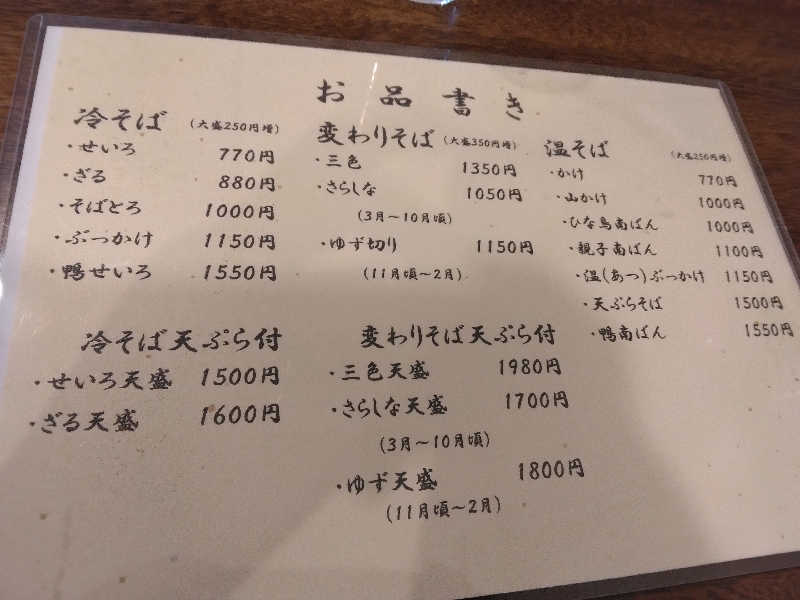 お品書き
冷そば (大盛250円増)
・せいろ 770円
・ざる 880円
・そばとろ 1000円
・ぶっかけ 1150円
・鴨せいろ 1550円
変わりそば (大盛350円増)
・三色 1350円
・さらしな 1050円
(3月〜10月頃)
・ゆず切り 1150円
(11月頃〜2月)
温そば (大盛250円増)
・かけ 770円
・山かけ 1000円
・ひな鳥南ばん 1000円
・親子南ばん 1100円
・温(あつ)ぶっかけ 1150円
・天ぷらそば 1500円
・鴨南ばん 1550円
冷そば天ぷら付
・せいろ天盛 1500円
・ざる天盛 1600円
変わりそば天ぷら付
・三色天盛 1980円
・さらしな天盛 1700円
(3月〜10月頃)
・ゆず天盛 1800円
(11月頃〜2月)